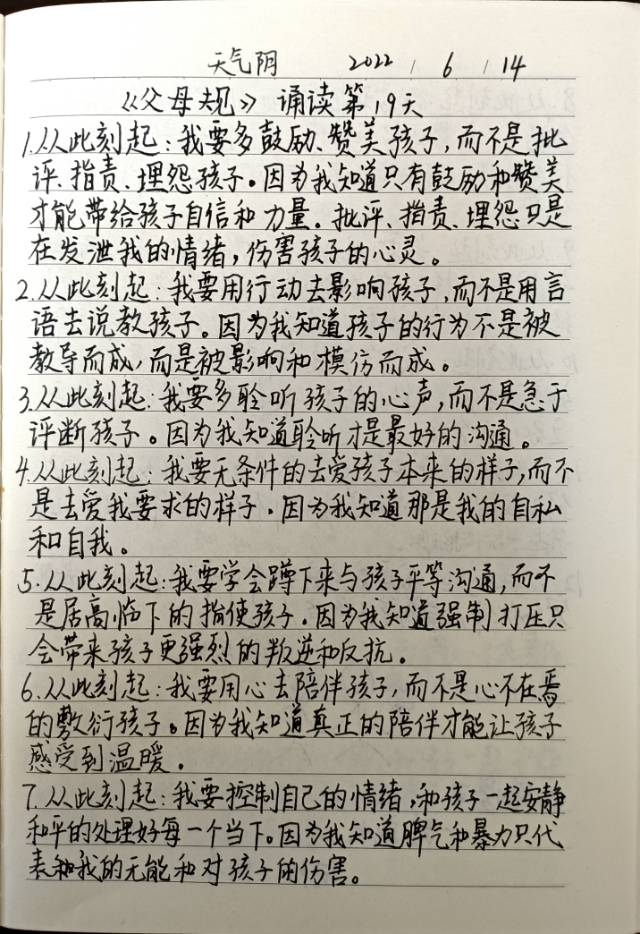 天气阴 2022 / 6 / 14
《父母规》诵读第19天
1.从此刻起:我要多鼓励、赞美孩子,而不是批
评、指责、埋怨孩子。因为我知道只有鼓励和赞美
才能带给孩子自信和力量。批评、指责、埋怨只是
在发泄我的情绪,伤害孩子的心灵。
2.从此刻起:我要用行动去影响孩子,而不是用言
语去说教孩子。因为我知道孩子的行为不是被
教导而成,而是被影响和模仿而成。
3.从此刻起:我要多聆听孩子的心声,而不是急于
评断孩子。因为我知道聆听才是最好的沟通。
4.从此刻起:我要无条件的去爱孩子本来的样子,而不
是去爱我要求的样子。因为我知道那是我的自私
和自我。
5.从此刻起:我要学会蹲下来与孩子平等沟通,而不
是居高临下的指使孩子。因为我知道强制打压只
会带来孩子更强烈的叛逆和反抗。
6.从此刻起:我要用心去陪伴孩子,而不是心不在焉
的敷衍孩子。因为我知道真正的陪伴才能让孩子
感受到温暖。
7.从此刻起:我要控制自己的情绪,和孩子一起安静
和平的处理好每一个当下。因为我知道脾气和暴力只代
表我的无能和对孩子的伤害。